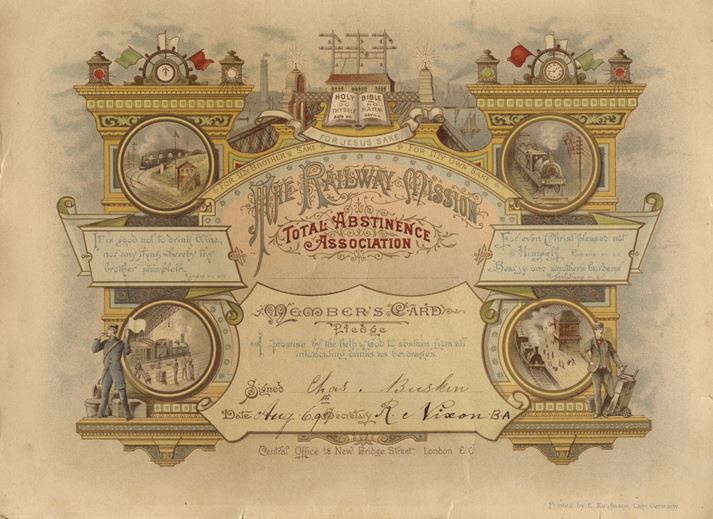 HOLY BIBLE
DO THYSELF NO HARM
ACTS XVI.
FOR JESUS SAKE
FOR MY BROTHER'S SAKE
FOR MY OWN SAKE
THE RAILWAY MISSION
TOTAL ABSTINENCE
ASSOCIATION
It is good not to drink Wine,
nor any thing whereby thy
brother stumbleth.
For even Christ pleased not
Himself.
Bear ye one another's burdens
MEMBER'S CARD
Pledge
I promise by the help of God to abstain from all
intoxicating drinks as beverages.
Signed Chas. Buskin
Date Aug 6th 95 Secretary R. C. Nixon BA
Central Office 18 New Bridge Street London E.C
Printed by E. Kaufmann, Lahr Germany